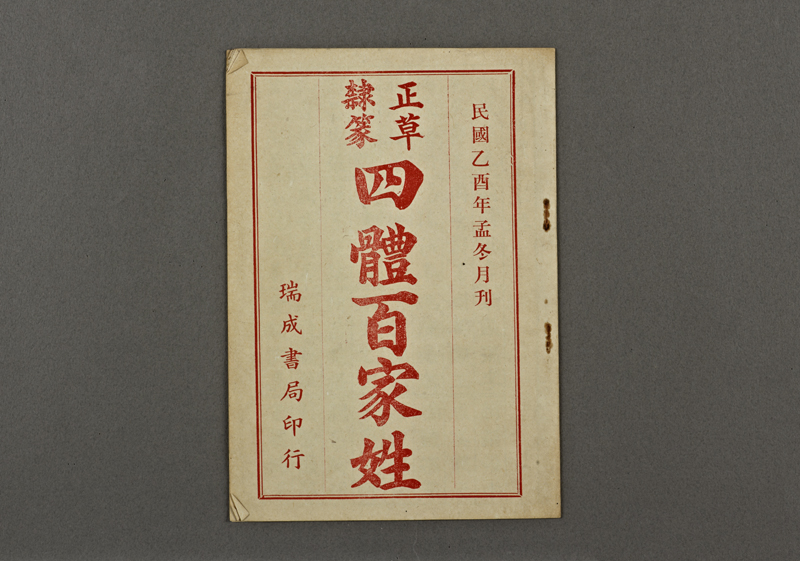 民國乙酉年孟冬月刊
正草
隸篆
四體百家姓
瑞成書局印行